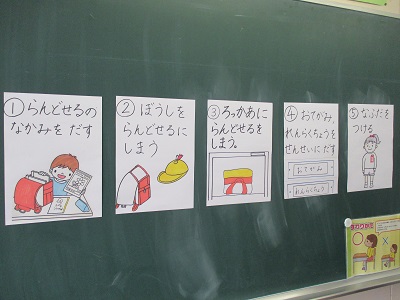 ① らんどせるの
なかみを だす
② ぼうしを
らんどせるに
しまう
③ ろっかあに
らんどせるを
しまう。
④ おてがみ、
れんらくちょうを
せんせいに だす
おてがみ
れんらくちょう
⑤ なふだを
つける